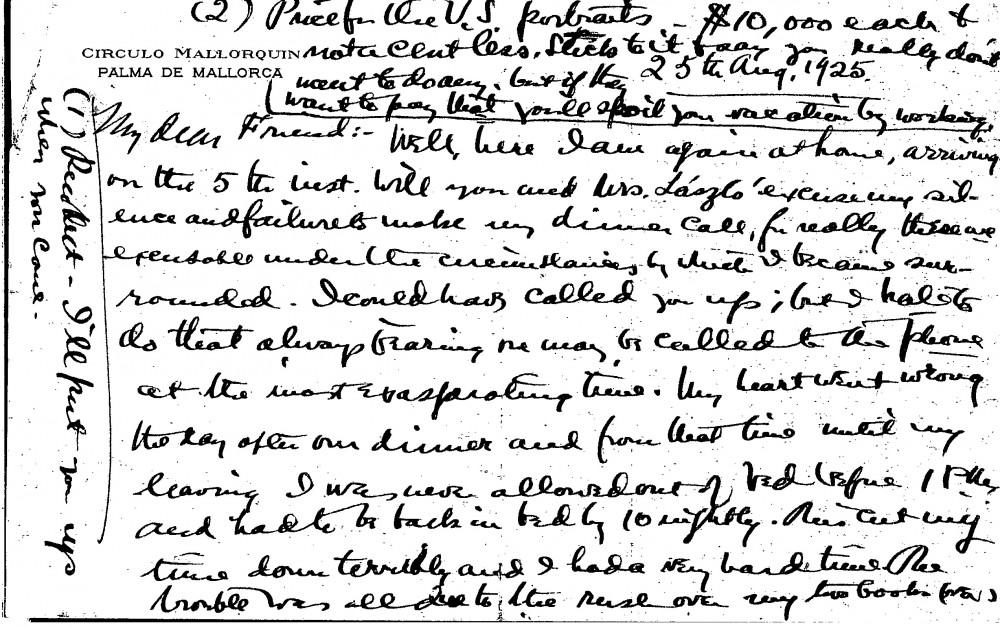 (2) Price for the U.S. portraits - $10,000 each &
not a cent less. Stick to it & say you really don't
want to do any, but if they
want to pay that you'll spoil your vacation by working.
CIRCULO MALLORQUIN
PALMA DE MALLORCA
25th Aug, 1925.
(1) Recollect - I'll put you up
when you come.
My dear Friend:- Well, here I am again at home, arriving
on the 5th inst. Will you and Mrs. László excuse my sil-
ence and failure to make my dinner call, for really these are
excusable under the circumstances by which I became sur-
rounded. I could have called you up; but I hate to
do that always fearing one may be called to the phone
at the most exasperating time. My heart went wrong
the day after our dinner and from that time until my
leaving I was never allowed out of bed before 1 PM,
and had to be back in bed by 10 nightly. This cut my
time down terribly and I had a very hard time. The
trouble was all due to the rush over my two books (over)